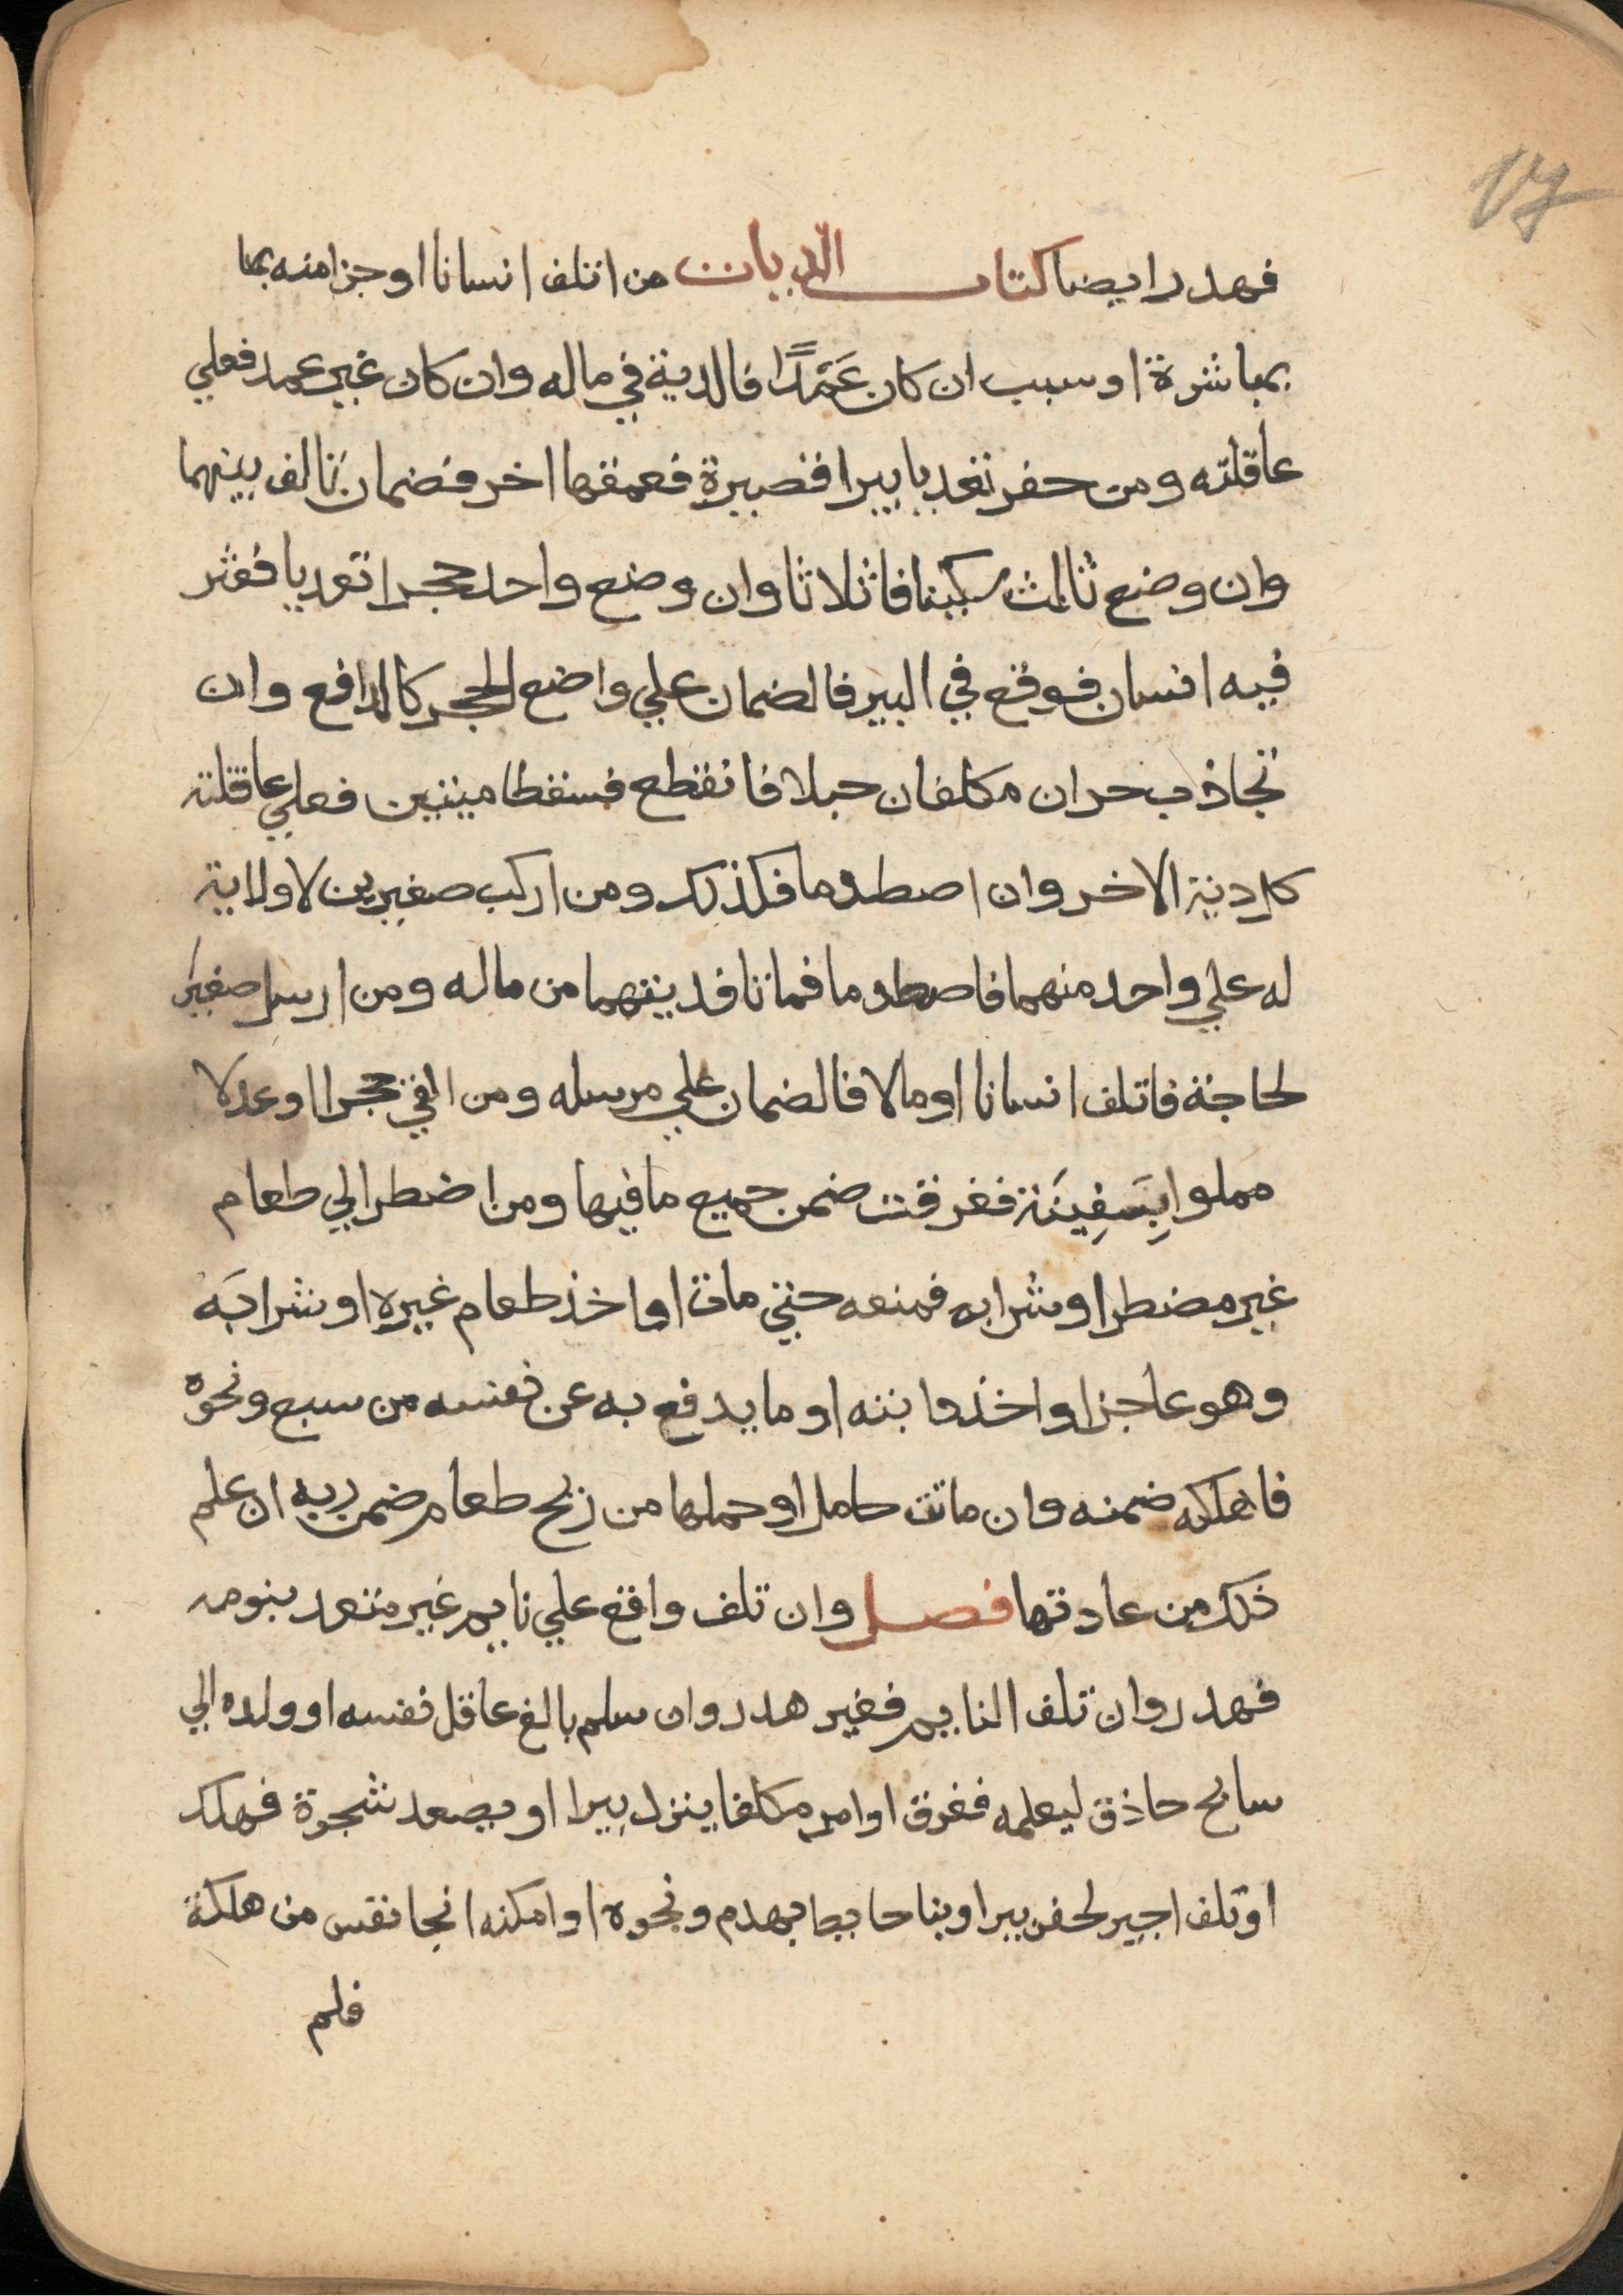 17
فهدر ايضا كتاب الديات من اتلف انسانا او جزا منه بما
بمباشرة او سبب ان كان عَمَدًا فالدية في ماله وان كان غير عمد فعلي
عاقلته ومن حفر تعديا بيرا قصيرة فعمقها اخر فضمان تالف بينهما
وان وضع ثالث سكينا فاثلاثا وان وضع واحد حجرا تعديا فعثر
فيه انسان فوقع في البير فالضمان علي واضع الحجر كالدافع وان
تجاذب حران مكلفان حبلا فانقطع فسقطا ميتين فعلي عاقلته
كل دية الاخر وان اصطدما فكذلك ومن اركب صغيرين لا ولاية
له علي واحد منهما فاصطدما فماتا فديتهما من ماله ومن ارسل صغيرا
لحاجة فاتلف انسانا او مالا فالضمان علي مرسله ومن القي حجرا او عدلا
مملوا بِسَفِينَة فغرقت ضمن جميع ما فيها ومن اضطر الي طعام
غير مضطر او شرابه فمنعه حتي مات او اخذ طعام غيره او شرابَه
وهو عاجز او اخذ دابته او ما يدفع به عن نفسه من سبع ونحوه
فاهلكه ضمنه وان ماتت حامل او حملها من ريح طعام ضمن ربه ان علم
ذلك من عادتها فصل وان تلف واقع علي نايم غير متعد بنومه
فهدر وان تلف النايم فغير هدر وان سلم بالغ عاقل نفسه او ولده الي
سابح حاذق ليعلمه فغرق او امر مكلفا ينزل بيرا او يصعد شجرة فهلك
او تلف اجير لحفر بير او بنا حايط بهدم ونحوه او امكنه انجا نفس من هلكة
فلم